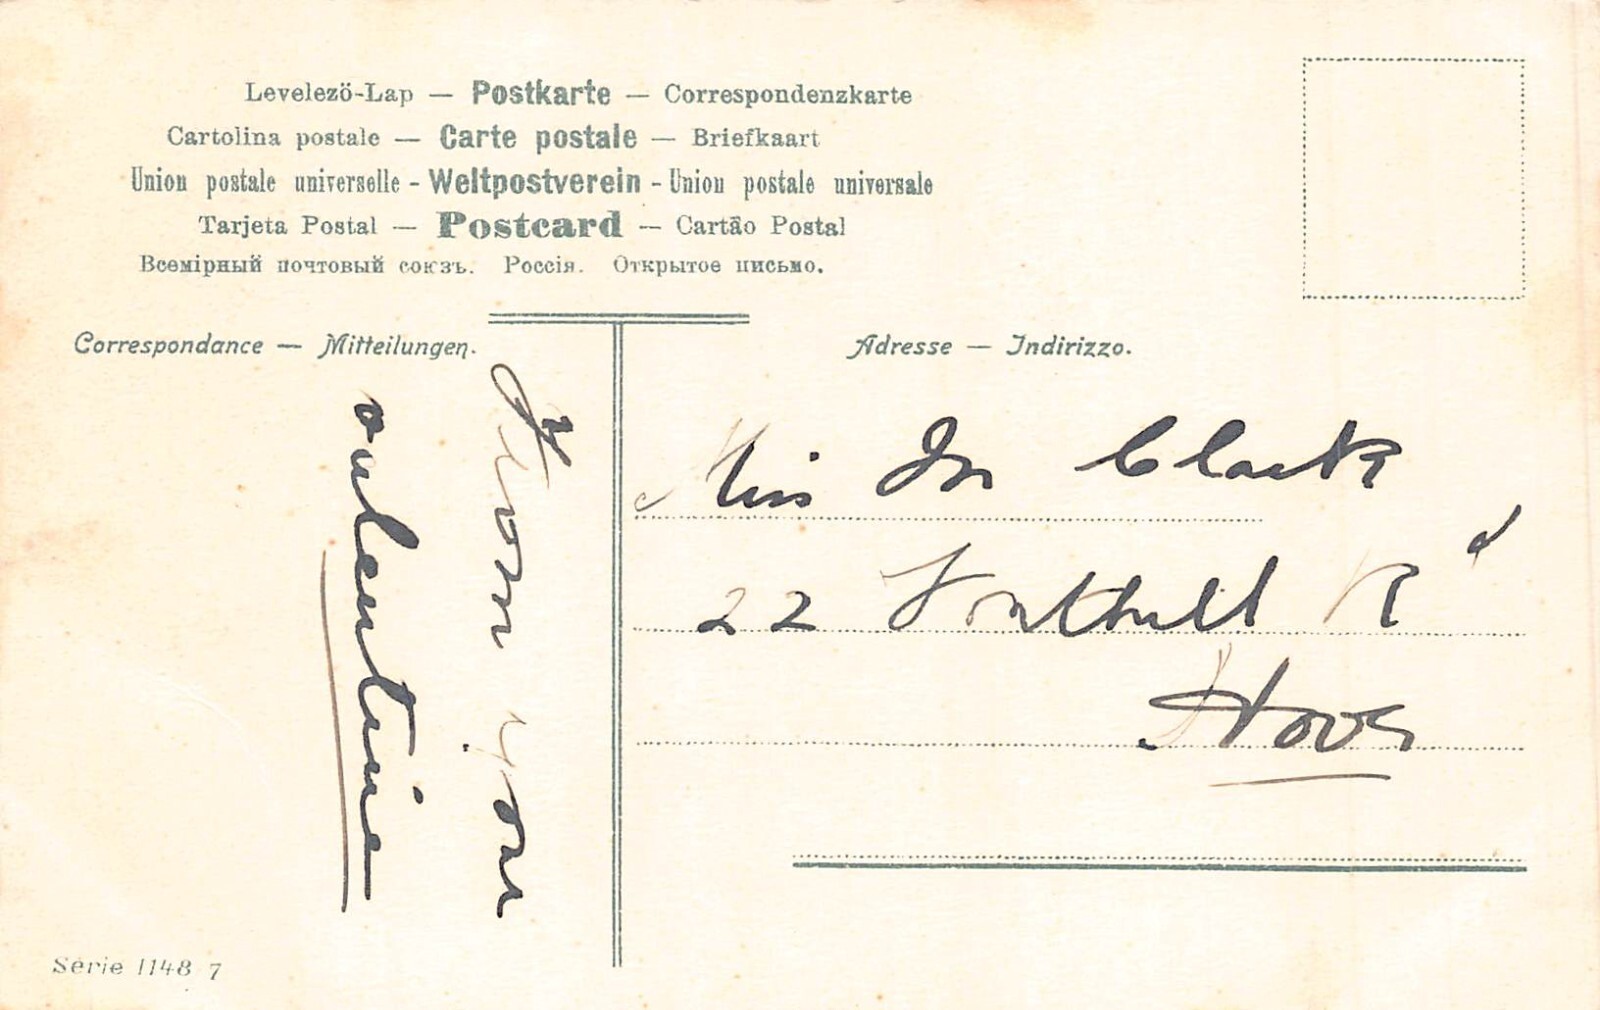 Levelezö-Lap — Postkarte — Correspondenzkarte
Cartolina postale — Carte postale — Briefkaart
Union postale universelle - Weltpostverein - Union postale universale
Tarjeta Postal — Postcard — Cartão Postal
Всемірный почтовый союзъ. Россія. Открытое письмо.
Correspondance — Mitteilungen.
Adresse — Indirizzo.
From your
valentine
Miss Clark
22 Fonthill Rd
Hove
Serie 1148 7